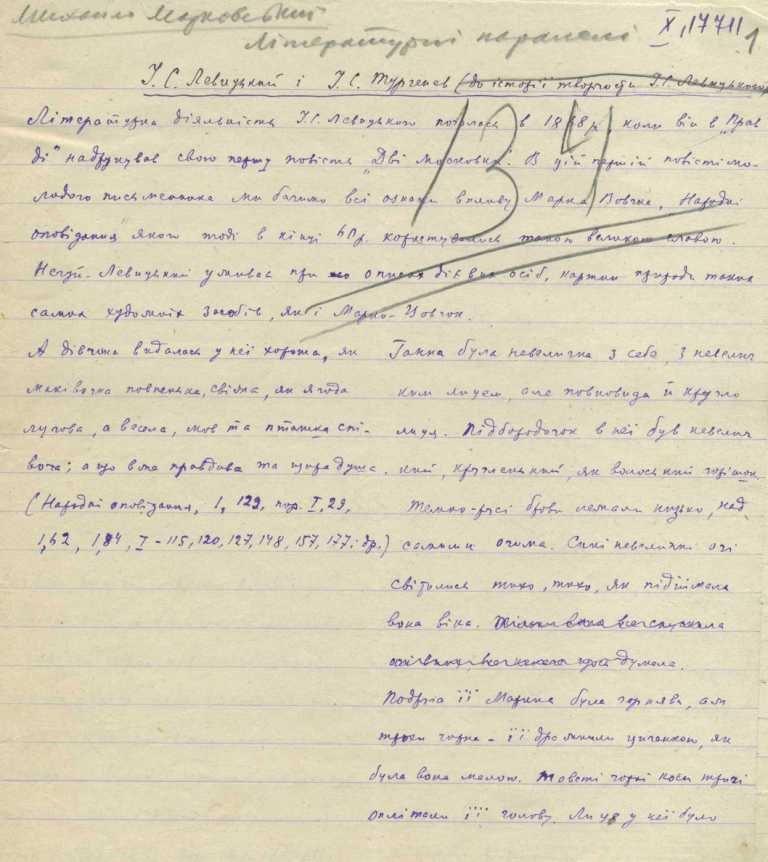 Михайло Марковський
X, 17711
1
Літературні паралелі
І. С. Левицький і І. С. Тургенев (до історії творчости І. С. Левицького)
134
Літературна діяльність І. С. Левицького почалась в 1868 р., коли він в „Прав
ді" надрукував свою першу повість „Дві московки". В цій першій повісті мо-
лодого письменника ми бачимо всі ознаки впливу Марка Вовчка, „Народні
оповідання" якого тоді в кінці 60 р. користувались такою великою славою.
Нечуй-Левицький уживає при описах дієвих осіб, картин природи таких
самих художніх засобів, як і Марко-Вовчок.
А дівчина видалась у неї хороша, як
маківочка повненька, свіжа, як ягода
лугова, а весела, мов та пташка спі-
воча; а що вона правдива та щира душа.
(Народні оповідання, 1, 129, пор. I, 29,
1,62, 1,84, I - 115, 120, 127, 148, 157, 177 і др.)
Ганна була невеличка з себе, з невелич
ким лицем, але повновида й кругло
лиця. Підбородочок в неї був невелич
кий, кругленький, як волоський горішок.
Темно-русі брови лежали низько, над
самими очима. Сині невеличкі очі
світились тихо, тихо, як підіймала
вона віка.
думала.
Подруга її Марина була чорнява, аж
надто чорна - її дражнили циганкою, як
була вона малою. Товсті чорні коси тричі
оплітали її голову. Лице у неї було